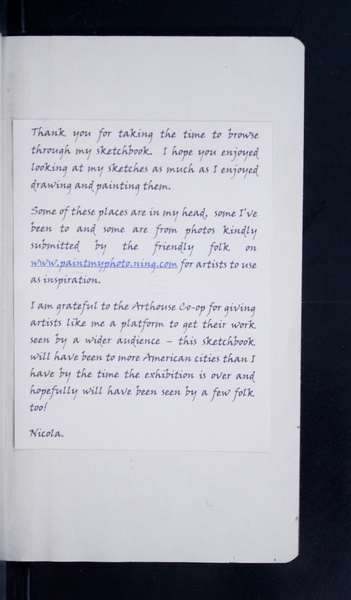 Thank you for taking the time to browse
through my sketchbook. I hope you enjoyed
looking at my sketches as much as I enjoyed
drawing and painting them.
Some of these places are in my head, some I've
been to and some are from photos kindly
submitted by the friendly folk on
www.paintmyphoto.ning.com for artists to use
as inspiration.
I am grateful to the Arthouse Co-op for giving
artists like me a platform to get their work
seen by a wider audience – this sketchbook
will have been to more American cities than I
have by the time the exhibition is over and
hopefully will have been seen by a few folk
too!
Nicola.